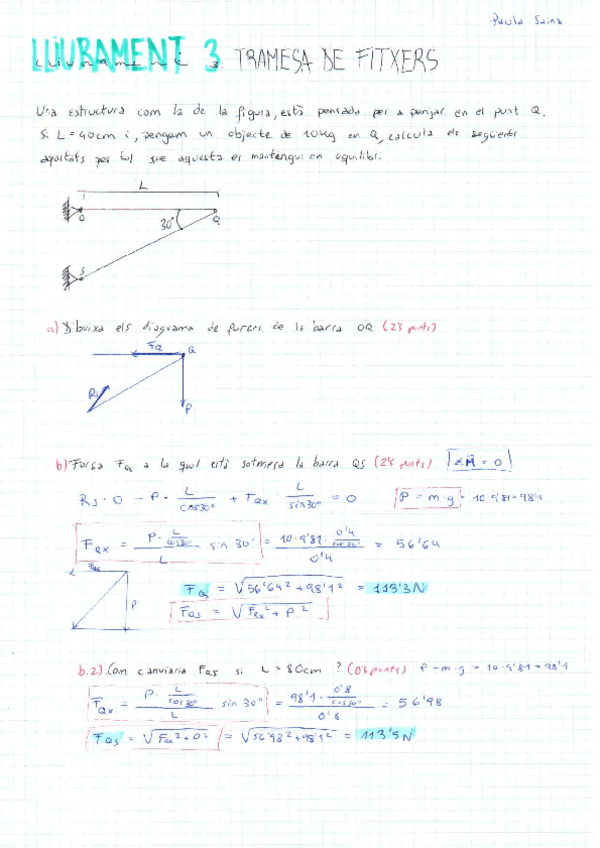 Paula Sainz
LLIURAMENT 3. TRAMESA DE FITXERS
Una estructura com la de la figura, està pensada per a penjar en el punt Q.
Si L = 40cm i, pengem un objecte de 10Kg en Q, calcula els següents
apartats per tal que aquesta es mantengui en equilibri:
L
O
30°
Q
S
a) Dibuixa els diagrama de forces de la barra OQ (2'5 punts)
FQ Q
Rs
P
b) Força FQS a la qual està sotmesa la barra QS (2'5 punts) ΣM = 0
Rs · 0 - P · L/cos30° + FQx L/sin30° = 0 P = m·g = 10·9'81=98'1
FQx = P · L/cos30° / L sin 30° = 10·9'81 · 0'4/cos30° / 0'4 = 56'64
FQS
P
FQ = √56'64² + 98'1² = 113'3N
FQS = √FQx² + P²
b.2) Com canviaria FQS si L = 80cm ? (0'5 punts) P = m·g = 10·9'81=98'1
FQx = P · L/cos30° / L sin 30° = 98'1 · 0'8/cos30° / 0'8 = 56'98
FQS = = √56'98² + 98'1² = 113'5N